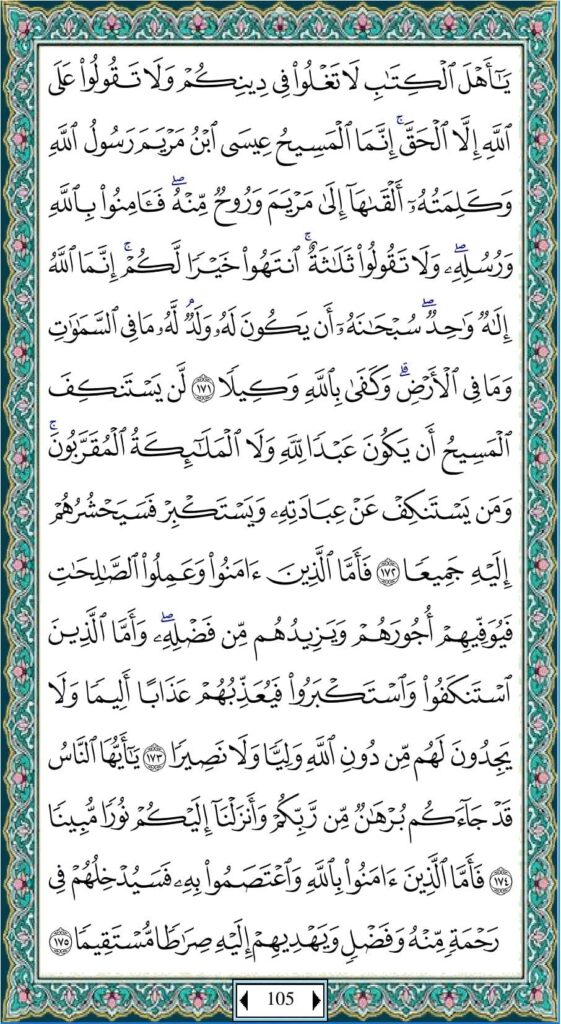 يَـٰٓأَهۡلَ ٱلۡكِتَـٰبِ لَا تَغۡلُوا۟ فِی دِینِكُمۡ وَلَا تَقُولُوا۟ عَلَى
ٱللَّهِ إِلَّا ٱلۡحَقَّۚ إِنَّمَا ٱلۡمَسِیحُ عِیسَى ٱبۡنُ مَرۡیَمَ رَسُولُ ٱللَّهِ
وَكَلِمَتُهُۥۤ أَلۡقَىٰهَاۤ إِلَىٰ مَرۡیَمَ وَرُوحࣱ مِّنۡهُۖ فَـَٔامِنُوا۟ بِٱللَّهِ
وَرُسُلِهِۦۖ وَلَا تَقُولُوا۟ ثَلَـٰثَةٌۚ ٱنتَهُوا۟ خَیۡرࣰا لَّكُمۡۚ إِنَّمَا ٱللَّهُ
إِلَـٰهࣱ وَ ٰ⁠حِدࣱۖ سُبۡحَـٰنَهُۥۤ أَن یَكُونَ لَهُۥ وَلَدࣱۘ لَّهُۥ مَا فِی ٱلسَّمَـٰوَ ٰ⁠تِ
وَمَا فِی ٱلۡأَرۡضِۗ وَكَفَىٰ بِٱللَّهِ وَكِیلࣰا ١٧١ لَّن یَسۡتَنكِفَ
ٱلۡمَسِیحُ أَن یَكُونَ عَبۡدࣰا لِّلَّهِ وَلَا ٱلۡمَلَـٰۤىِٕكَةُ ٱلۡمُقَرَّبُونَۚ
وَمَن یَسۡتَنكِفۡ عَنۡ عِبَادَتِهِۦ وَیَسۡتَكۡبِرۡ فَسَیَحۡشُرُهُمۡ
إِلَیۡهِ جَمِیعࣰا ١٧٢ فَأَمَّا ٱلَّذِینَ ءَامَنُوا۟ وَعَمِلُوا۟ ٱلصَّـٰلِحَـٰتِ
فَیُوَفِّیهِمۡ أُجُورَهُمۡ وَیَزِیدُهُم مِّن فَضۡلِهِۦۖ وَأَمَّا ٱلَّذِینَ
ٱسۡتَنكَفُوا۟ وَٱسۡتَكۡبَرُوا۟ فَیُعَذِّبُهُمۡ عَذَابًا أَلِیمࣰا وَلَا
یَجِدُونَ لَهُم مِّن دُونِ ٱللَّهِ وَلِیࣰّا وَلَا نَصِیرࣰا ١٧٣ یَـٰۤأَیُّهَا ٱلنَّاسُ
قَدۡ جَاۤءَكُم بُرۡهَـٰنࣱ مِّن رَّبِّكُمۡ وَأَنزَلۡنَاۤ إِلَیۡكُمۡ نُورࣰا مُّبِینࣰا
١٧٤ فَأَمَّا ٱلَّذِینَ ءَامَنُوا۟ بِٱللَّهِ وَٱعۡتَصَمُوا۟ بِهِۦ فَسَیُدۡخِلُهُمۡ فِی
رَحۡمَةࣲ مِّنۡهُ وَفَضۡلࣲ وَیَهۡدِیهِمۡ إِلَیۡهِ صِرَ ٰ⁠طࣰا مُّسۡتَقِیمࣰا ١٧٥
105